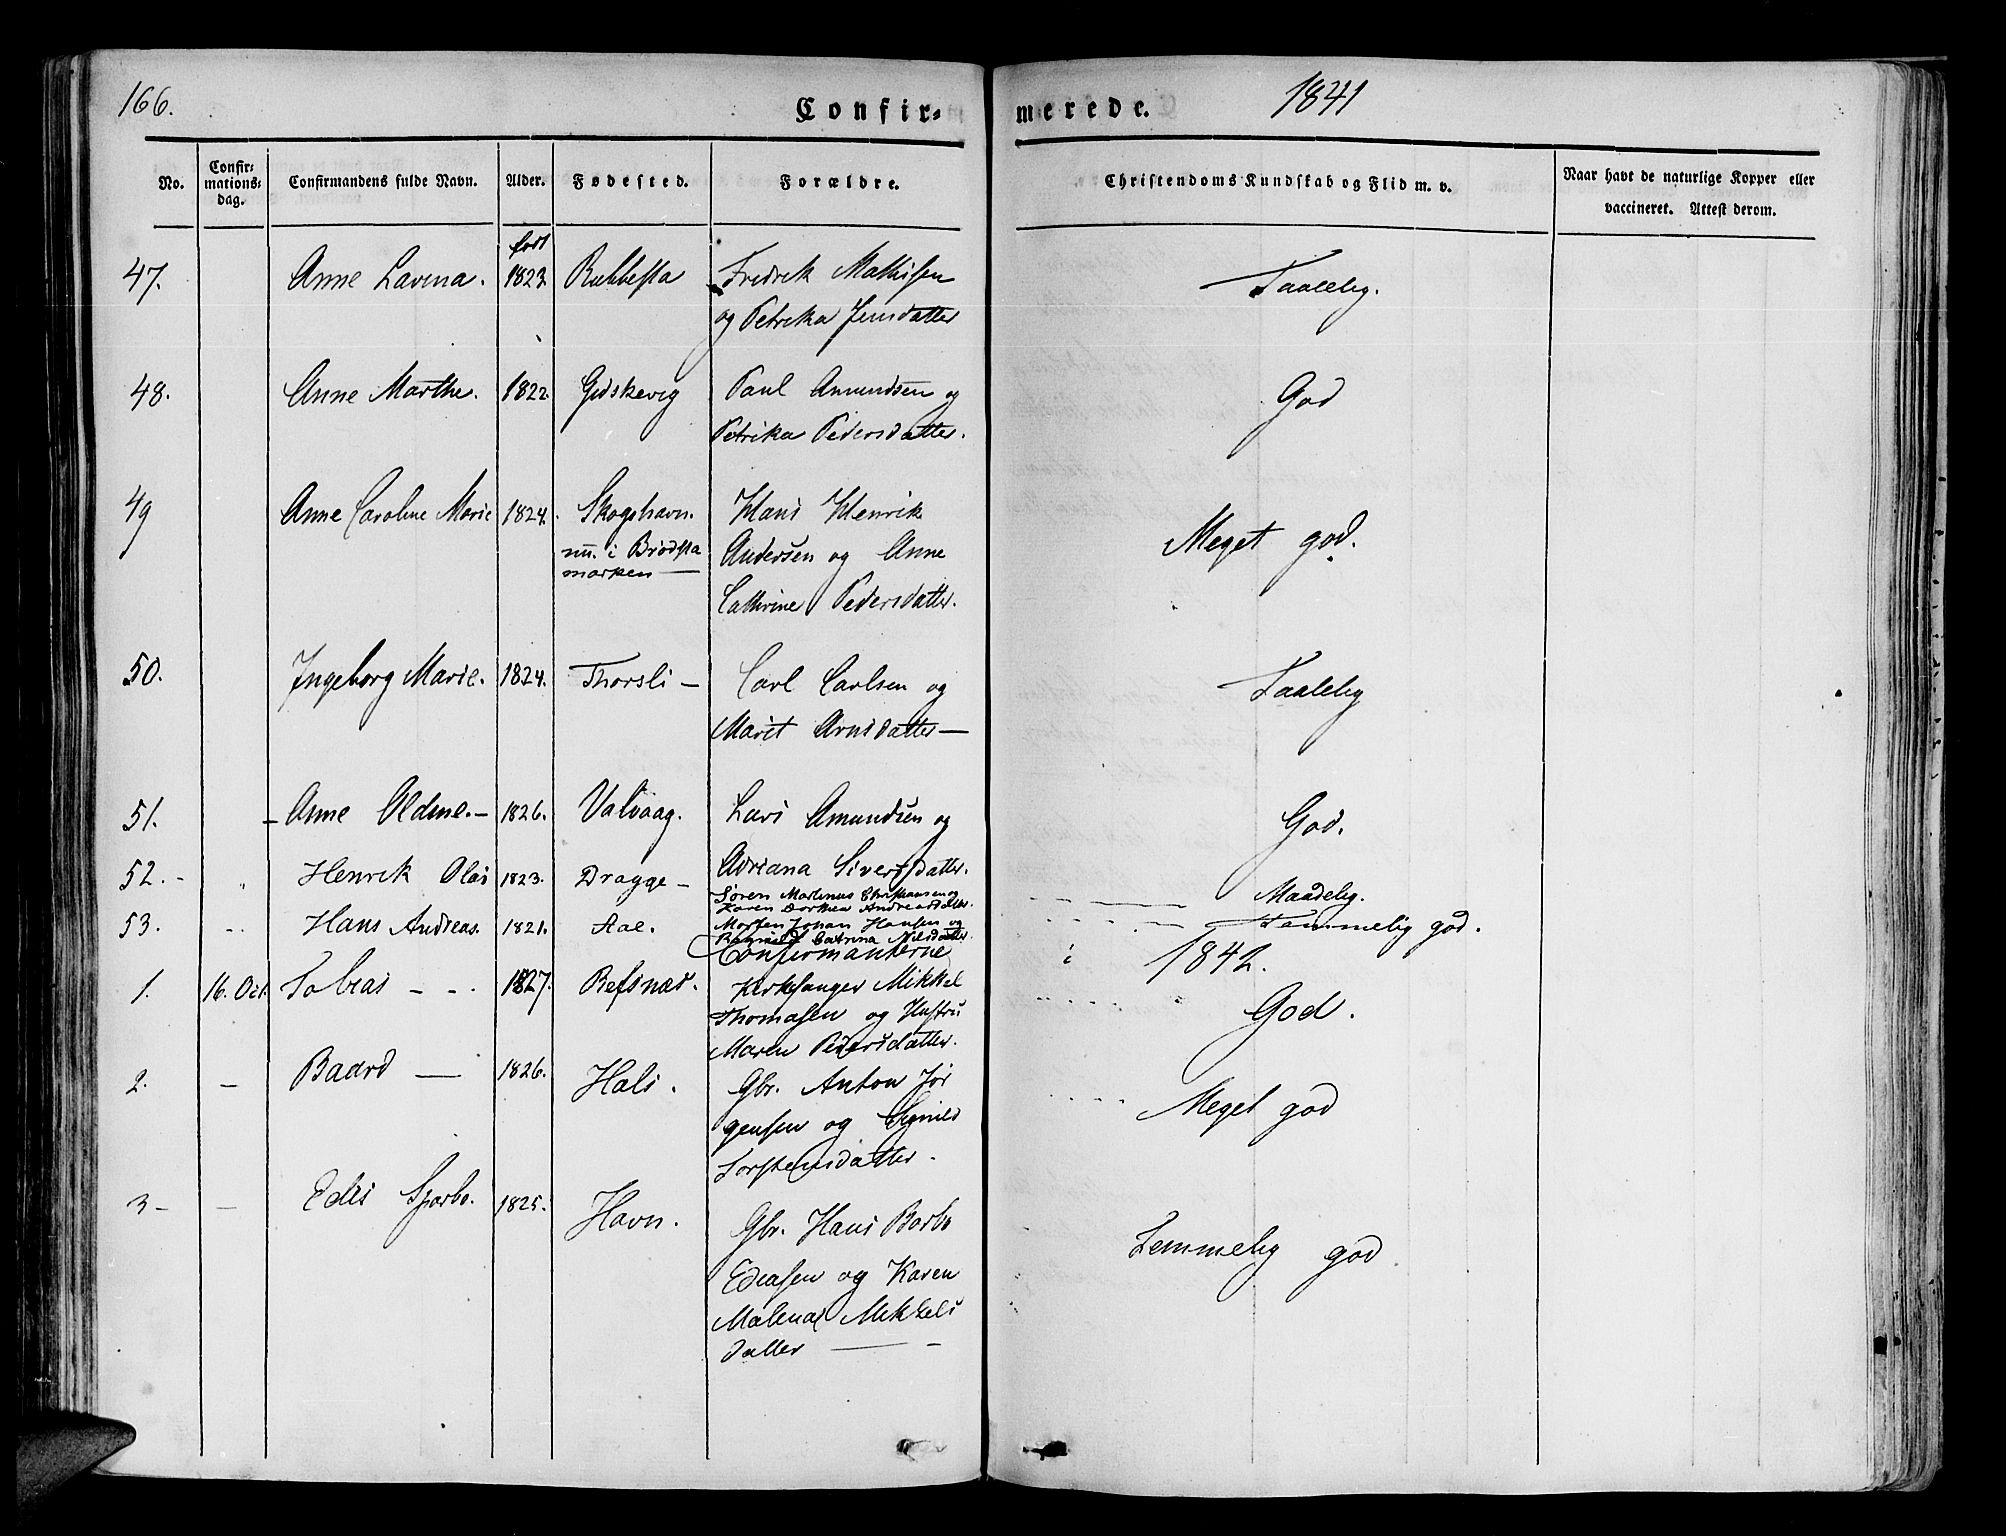 166.
Confir=
merede.
1841
No.
Confir=
mations=
dag.
Confirmandens fulde Navn.
Alder.
Fødested.
Forældre.
Christendoms Kundskab og Flid m. v.
Naar havt de naturlige Kopper eller
vaccineret. Attest derom.
født
47. Anne Lavina. 1823 Rubbesta Fredrik Mathisen Taalelig.
og Petrika Jensdatter
48. Anne Marthe. 1822. Gidskevig Paul Amundsen og God
Petrika Pedersdatter.
49 Anne Caroline Marie 1824. Skogshavn. Hans Henrik Meget god.
nu. i Brødsta Andersen og Anne
marken — Cathrine Pedersdatter.
50. Ingeborg Marie. 1824. Thorsli — Carl Carlsen og Taalelig
Marit Arnsdatter —
51. – Anne Oldine. – 1826. Valvaag. Lars Amundsen og God.
Adriana Sivertsdatter.
52. - „ Henrik Olai 1823. Dragge – Søren Martinus Christiansen og Maadelig.
Karen Dorthea Andreasdatter.
53. „ Hans Andreas. 1821. Aae. Morten Johan Hansen og Temmelig god.
Ragnild Catrina Nilsdatter.
Confirmanterne i 1842.
1. 16. Oct. Tobias - - . 1827. Refsnæs. Kirkesanger Mikkel God.
Thomasen og Hustru
Maren Pedersdatter.
2. — Baard — 1826. Hals. Gbr. Anton Jør Meget god
gensen og Signild
Torstensdatter.
3 – — Edis Sparbo. 1825. Havn. Gbr. Hans Barbo Temmelig god
Ediasen og Karen
Malenas Mikkels
datter — –